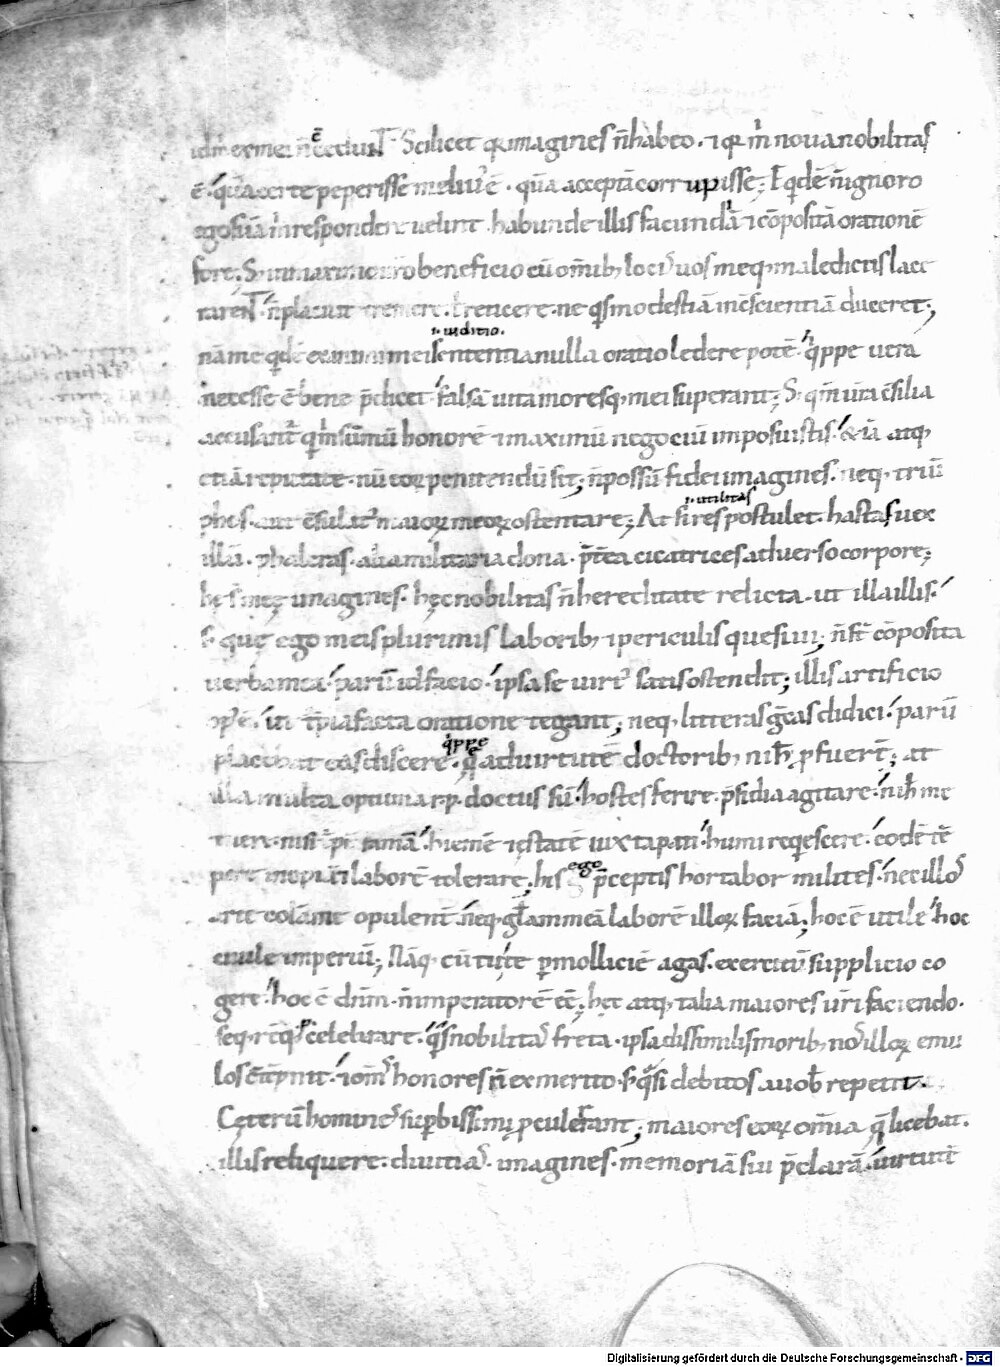 Scilicet q̄a imagines n̄ habeo · ⁊ q̄a m̄ noua nobilitas
ē · quā certe peperisse meliuſ ē · quā acceptā corrupisse; Eq̄dē n̄ ignoro
respondere uelint · habunde illis facundā ⁊ cōpositā orationē
fore; S; in maximo uro beneficio cū omib; locis uos meq; maledictis lace
n̄ placuit reticere · ne q̄s modestiā in cscientiā duceret;
.i. iuditio.
nā me q̄dē ex animi mei sententia nulla oratio ledere potē · q̄ppe uera
necesse ē bene p̄dicet · falsā uita moresq; mei superant; S; qm̄ ur̄a csilia
accusant̄ q̄ m̄ sūmū honorē ⁊ maximū negociū imposuistis · & iā atq;
etiā reputate · nū eoꝝ penitendū sit; n̄ possū fidei imagines · neq; triū
.i. utilitas
phos aut csulat' maioꝝ meoꝝ ostentare; At si res postulet · hastas uex
illū · phaleras · alia militaria dona · p̄tea cicatrices aduerso corpore;
hę s̄ meę imagines · hęc nobilitas n̄ hereditate relicta · ut illa illis ·
s; quę ego meis plurimis laborib; ⁊ periculis quesiui; n̄ st̄ cōposita
uerba mea · parū id facio · ipsa se uirt' satis ostendit; illis artificio
op' ē · ut turpia facta oratione tegant; neq; litteras grecas didici · parū
q̄ppe
placebat eas discere · q̄ ad uirtutē doctorib; nih̄ pfuer̄t; at
illa multa optima r.p. doctus sū · hostes ferire · p̄sidia agitare · nih̄ me
tuere · nisi turpē famā · hiemē ⁊ ęstatē iuxta pati · humi reqescere · eodē tē
ego
pore inopiā ⁊ laborē tolerare; his p̄ceptis hortabor milites · nec illoˢ
arte colā me opulent̄ · neq; glām meā laborē illoꝝ faciā; hoc ē utile · hoc
ciuile imperiū; Nāq; cū tute p mollicię agas · exercitū supplicio co
gere · hoc ē dn̄m · n̄ imperatorē eē; hęc atq; talia maiores ur̄i faciendo ·
seq; rēq; p celebrare · q̄s nobilitas freta · ipsa dissimilis morib; nos illoꝝ emu
los ctēpnit · ⁊ om̄s honores n̄ ex merito · s; q̄si debitos a uob̄ repetit.
Cęterū homines supbissimi pcul errant; maiores eoꝝ omia q̄ licebat ·
illis reliquere · diuitias · imagines · memoriā sui p̄clarā · uirtutē
Digitalisierung gefördert durch die Deutsche Forschungsgemeinschaft - DFG